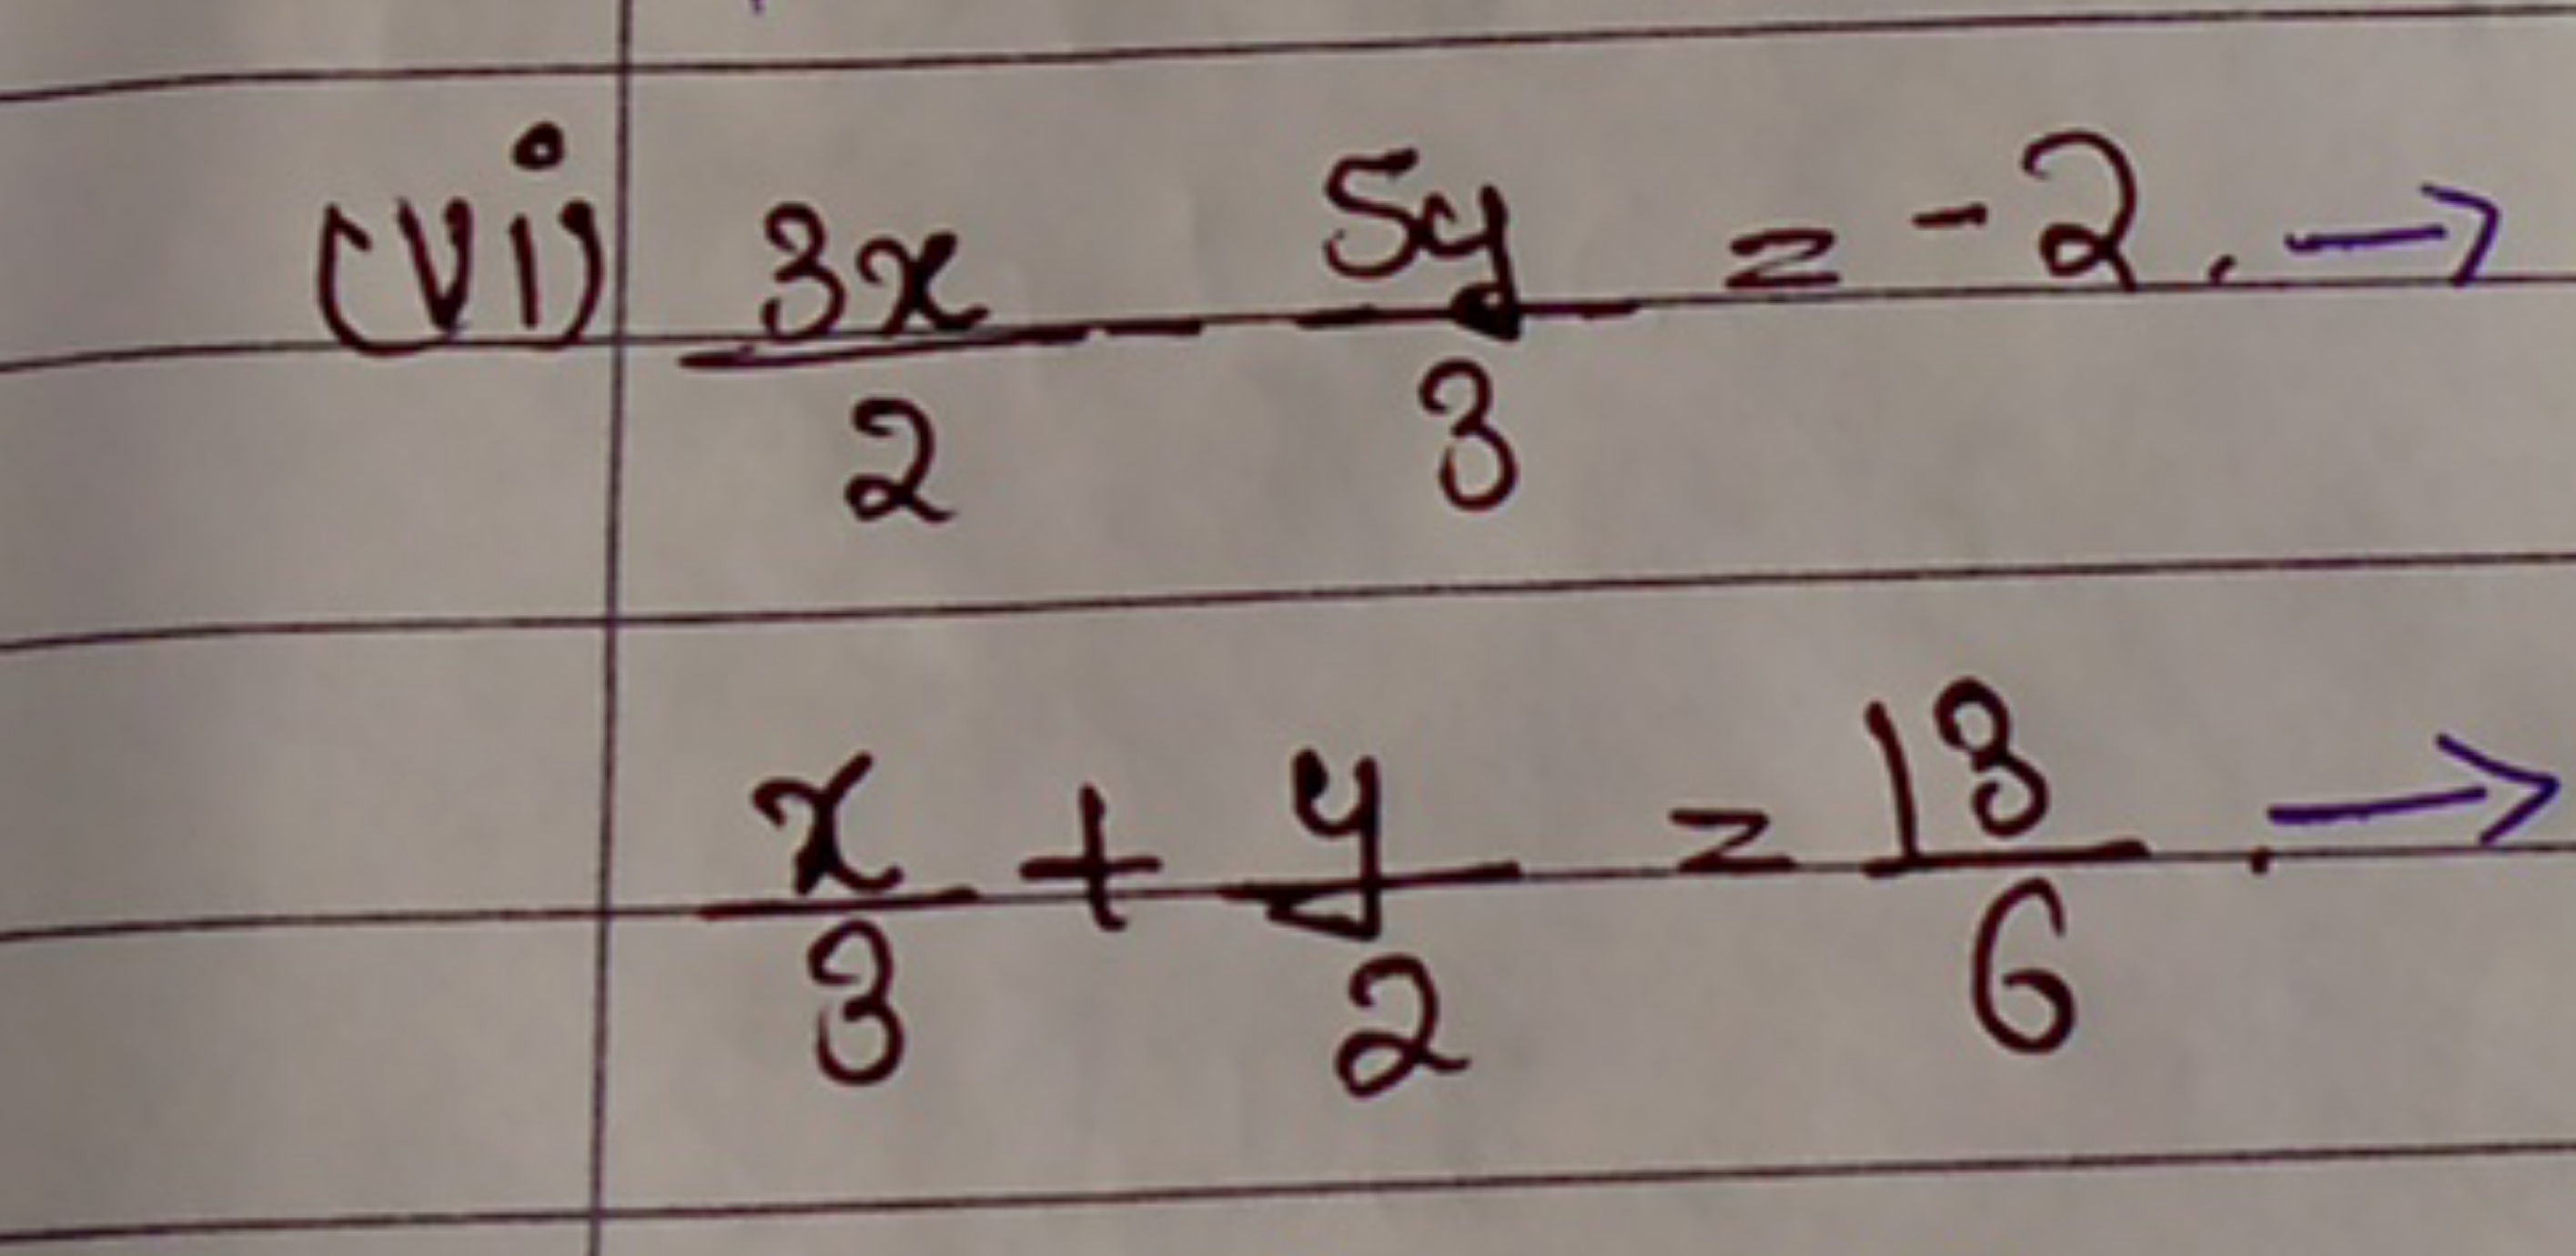 (vi) 3x/2 - 5y/3 = -2. →
x/3 + y/2 = 13/6. →